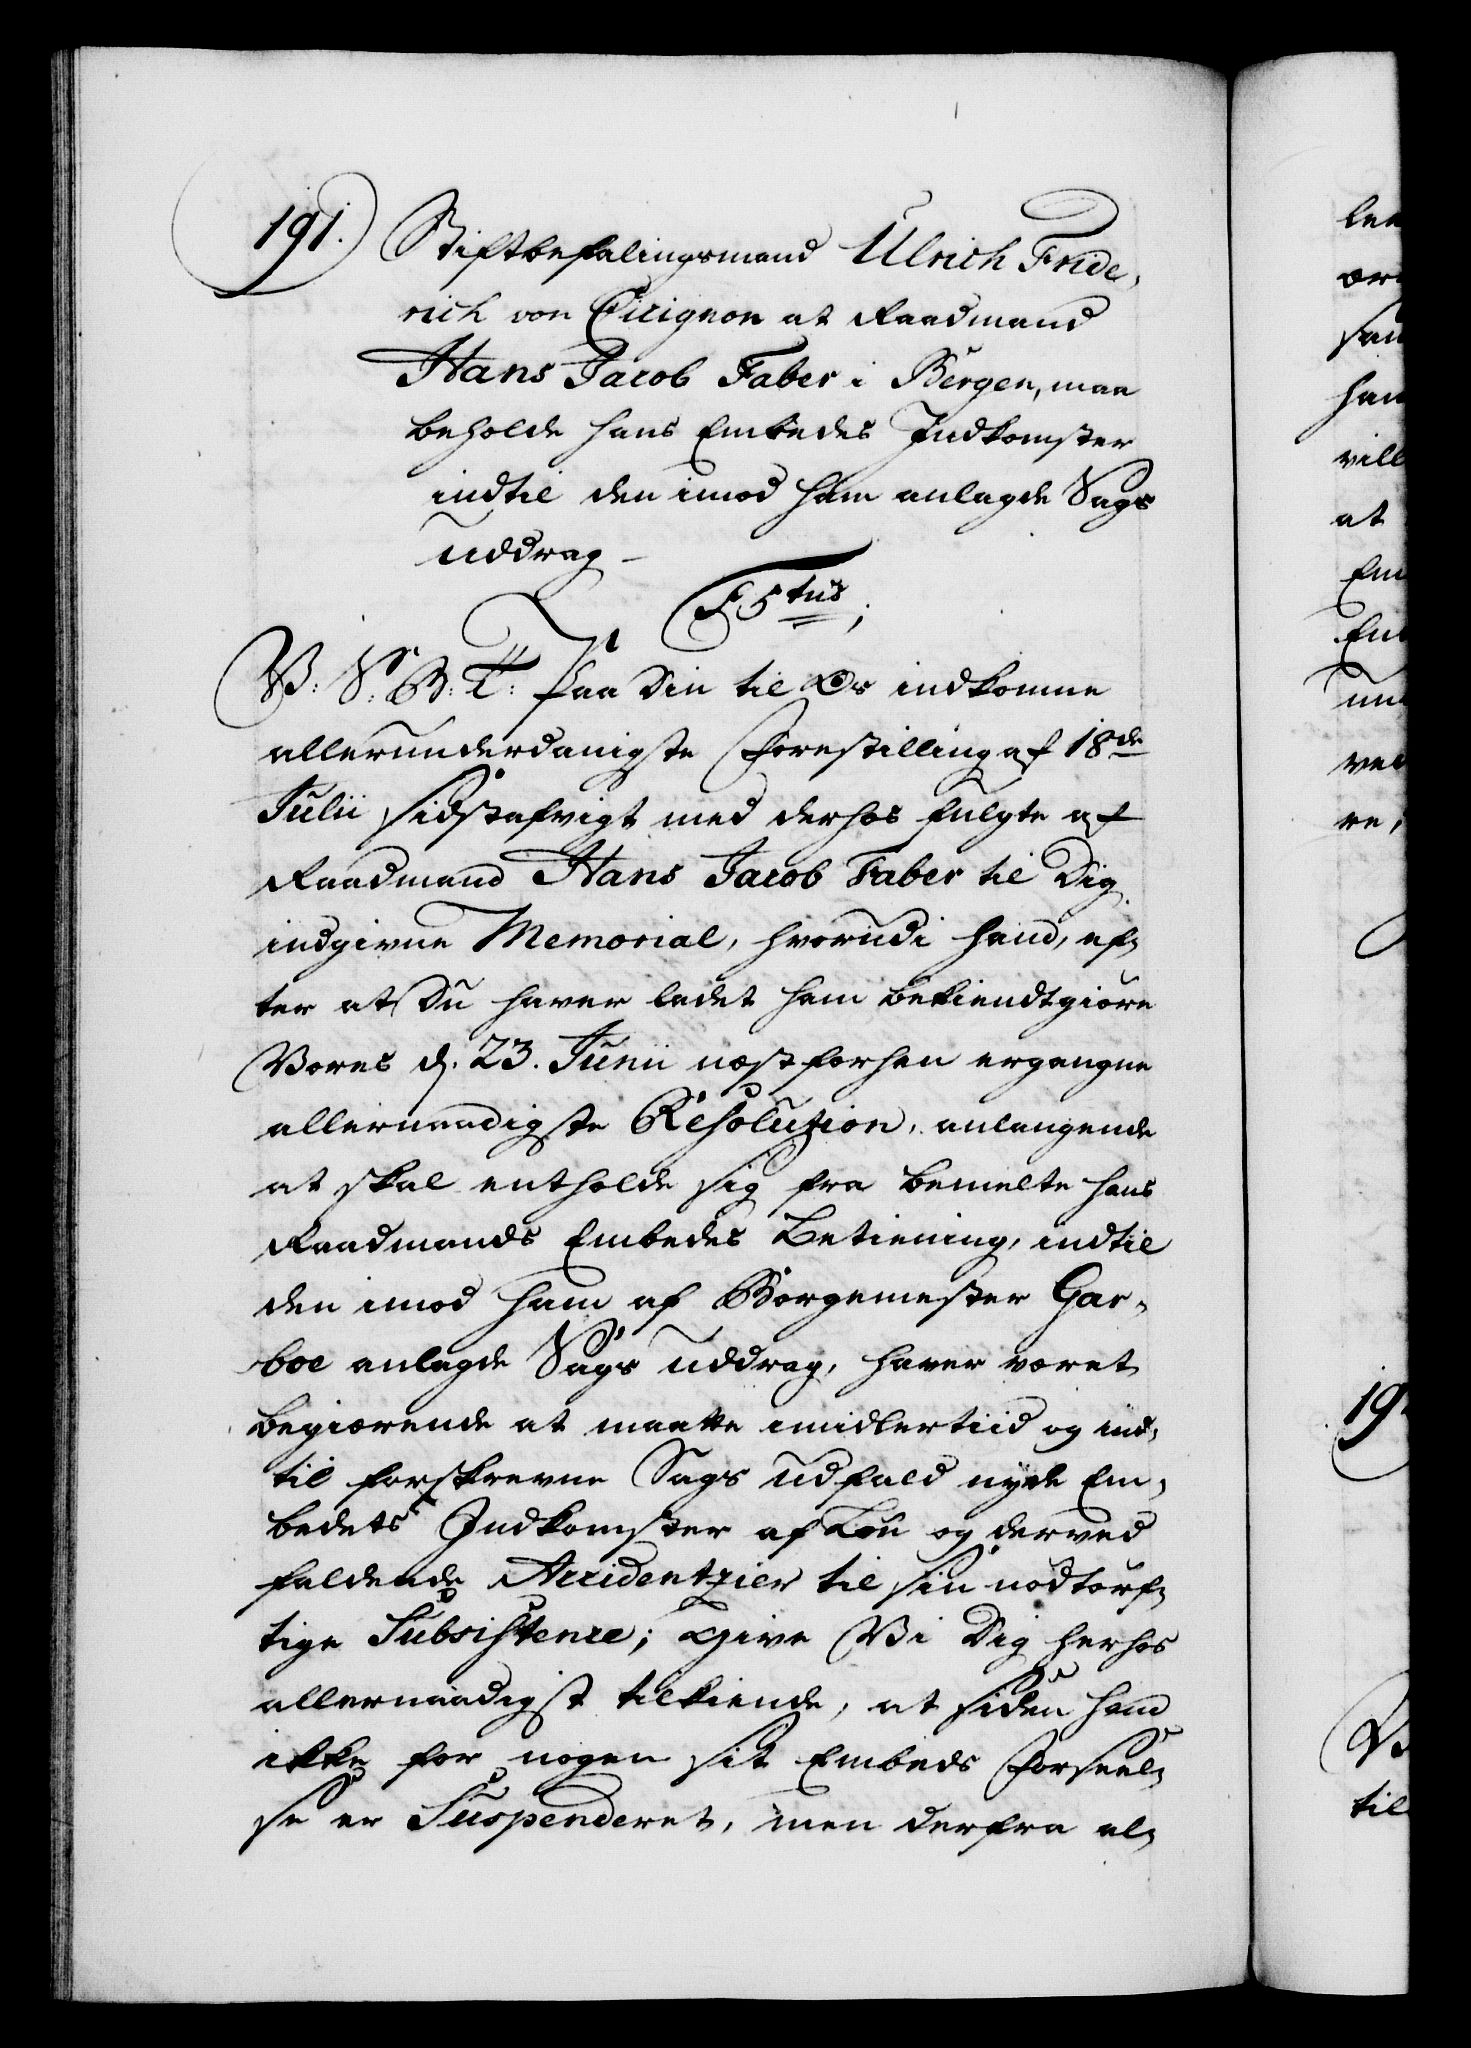 191. Stiftbefalingsmand Ulrich Fride-
rich von Cicignon at Raadmand
Hans Jacob Faber i Bergen, maa
beholde hans Embedes Indkomster
indtil den imod ham anlagde Sags
Uddrag
F 5tus;
V: S: G: T: Paa Din til Os indkomne
allerunderdanigste Forestilling af 18de
Julii sidstafvigt med derhos fulgte af
Raadmand Hans Jacob Faber til Dig
indgivne Memorial, hvorudi hand, ef-
ter at Du haver ladet ham bekiendtgiöre
Vores d. 23. Junii næstforhen ergangne
allernaadigste Resolution, anlangende
at skal entholde sig fra bemelte hans
Raadmands Embedes Betiening, indtil
den imod ham af Borgemester Gar-
boe anlagde Sags Uddrag, haver været
begiærende at maatte imidlertiid og ind-
til forskrevne Sags Udfald nyde Em-
bedets Indkomster af Lön og derved
faldende Accidentzier til sin nödtörf-
tige Subsistence; Give Vi Dig herhos
allernaadigst tilkiende, at siden hand
ikke for nogen sit Embeds Forseel-
se er Suspenderet, men derfra al-